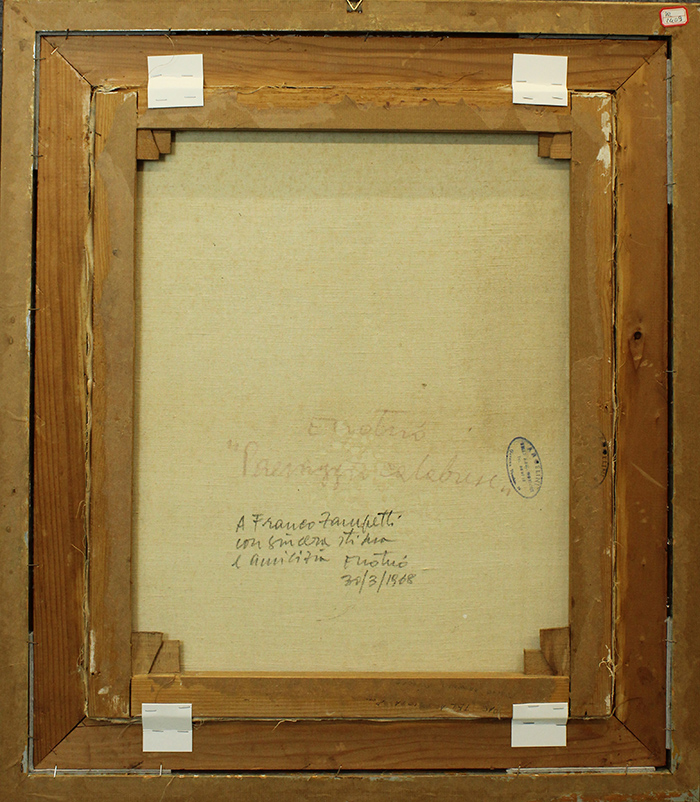 Enotrio
"Paesaggio calabrese"
A Franco Zampetti
con sincera stima
e amicizia Enotrio
30/3/1968